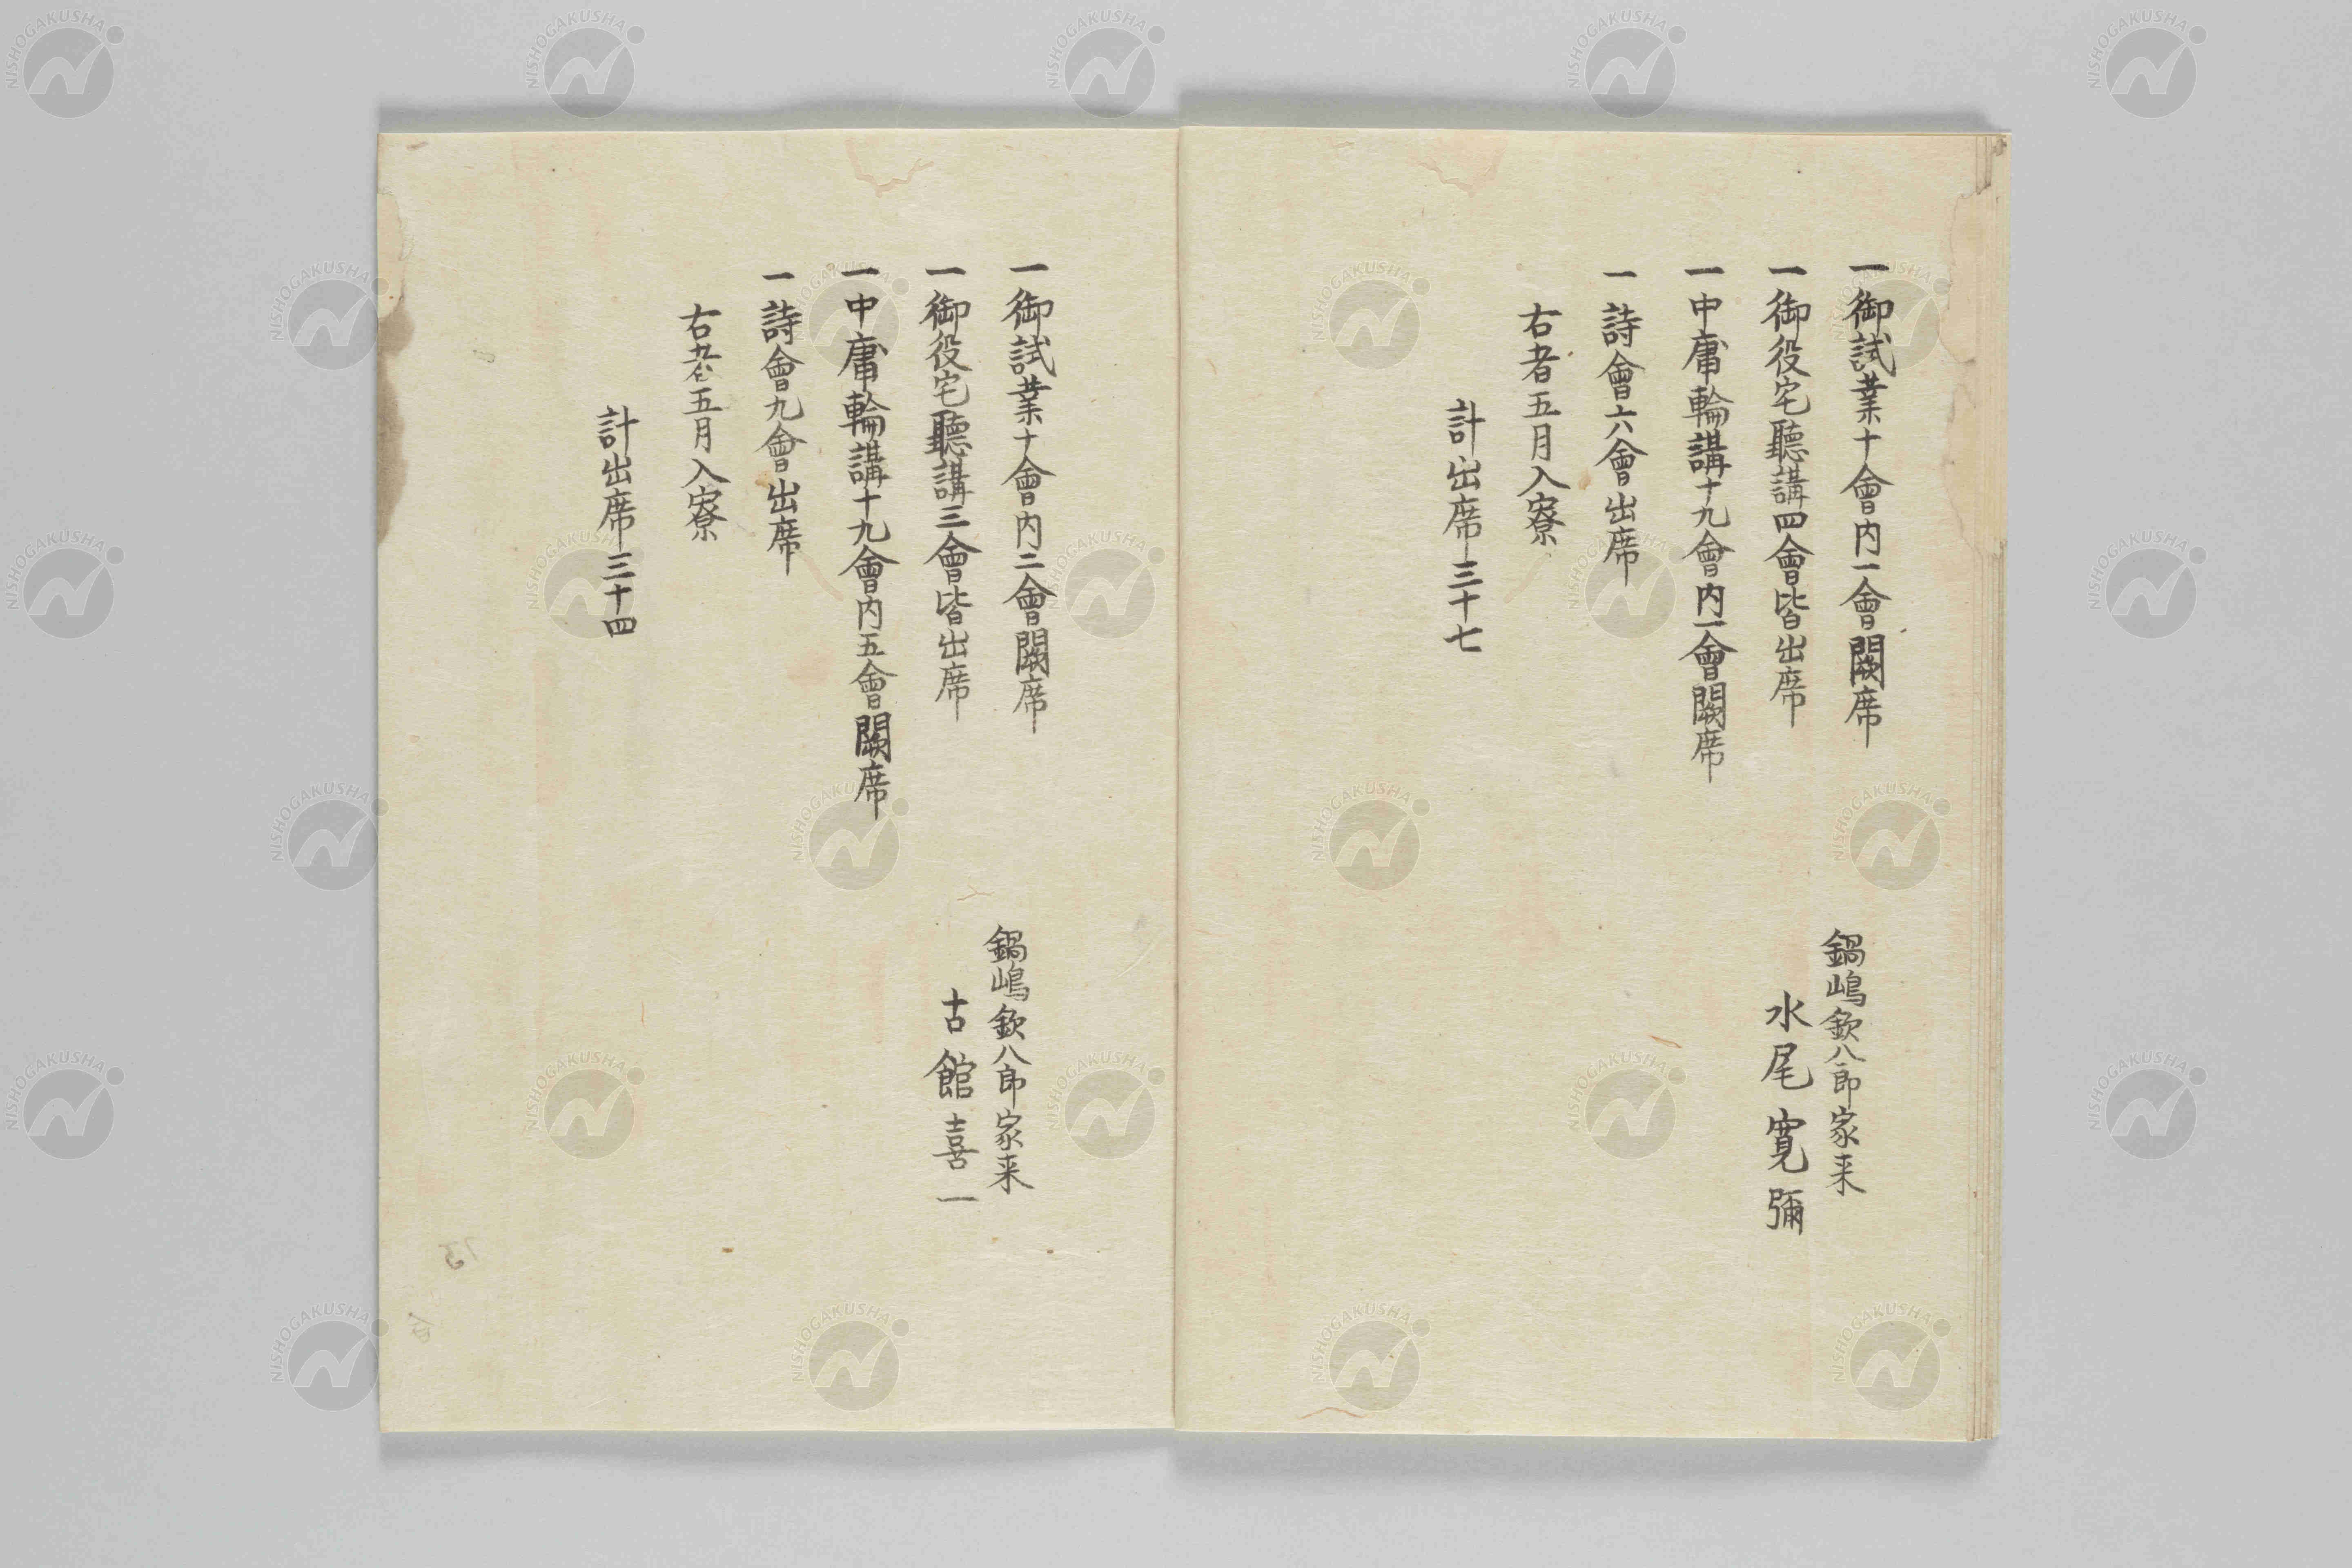 一御試業十會内一會闕席
一御役宅聽講四會皆出席
一中庸輪講十九會内一會闕席
一詩會六會出席
右者五月入寮
計出席三十七
鍋嶋欽八郎家来
水尾寛彌
一御試業十會内二會闕席
一御役宅聽講三會皆出席
一中庸輪講十九會内五會闕席
一詩會九會出席
右者五月入寮
計出席三十四
鍋嶋欽八郎家来
古館喜一
NISHOGAKUSHA